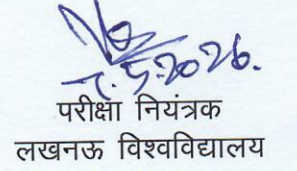 7.5.2026.
परीक्षा नियंत्रक
लखनऊ विश्वविद्यालय